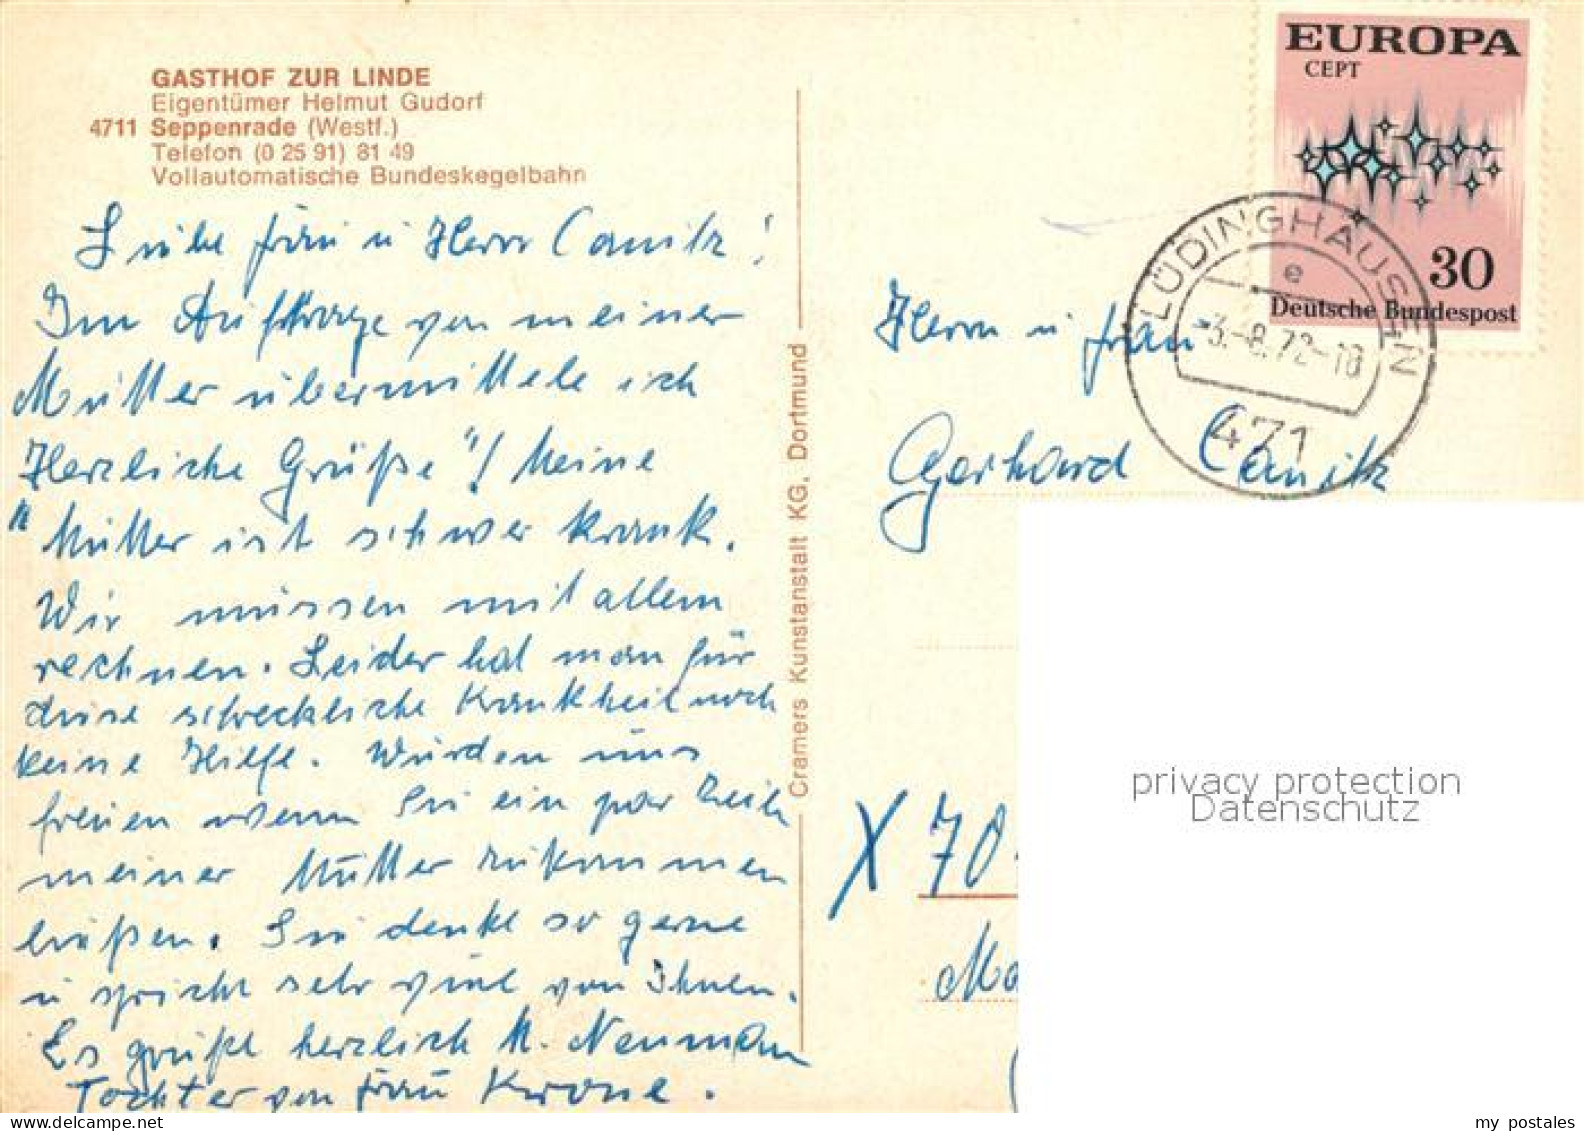 EUROPA
CEPT
30
Deutsche Bundespost
LÜDINGHAUSEN
e
-3.-8.72-18
471
GASTHOF ZUR LINDE
Eigentümer Helmut Gudorf
4711 Seppenrade (Westf.)
Telefon (0 25 91) 81 49
Vollautomatische Bundeskegelbahn
Liebe Frau u Herrn Canitz!
Im Auftrage von meiner
Mutter übermittele ich
Herzliche Grüße"! Meine
"Mutter ist schwer krank.
Wir müssen mit allem
rechnen. Leider hat man für
diese schreckliche Krankheit noch
keine Hilfe. Würden uns
freuen wenn Sie ein par Zeile
meiner Mutter zukommen
ließen. Sie denkt so gerne
u spricht sehr viel von Ihnen.
Es grüßt herzlich M. Neumann
Tochter von Frau Krone.
Cramers Kunstanstalt KG, Dortmund
Herrn u Frau
Gerhard Canitz
X 70
privacy protection
Datenschutz
my postales